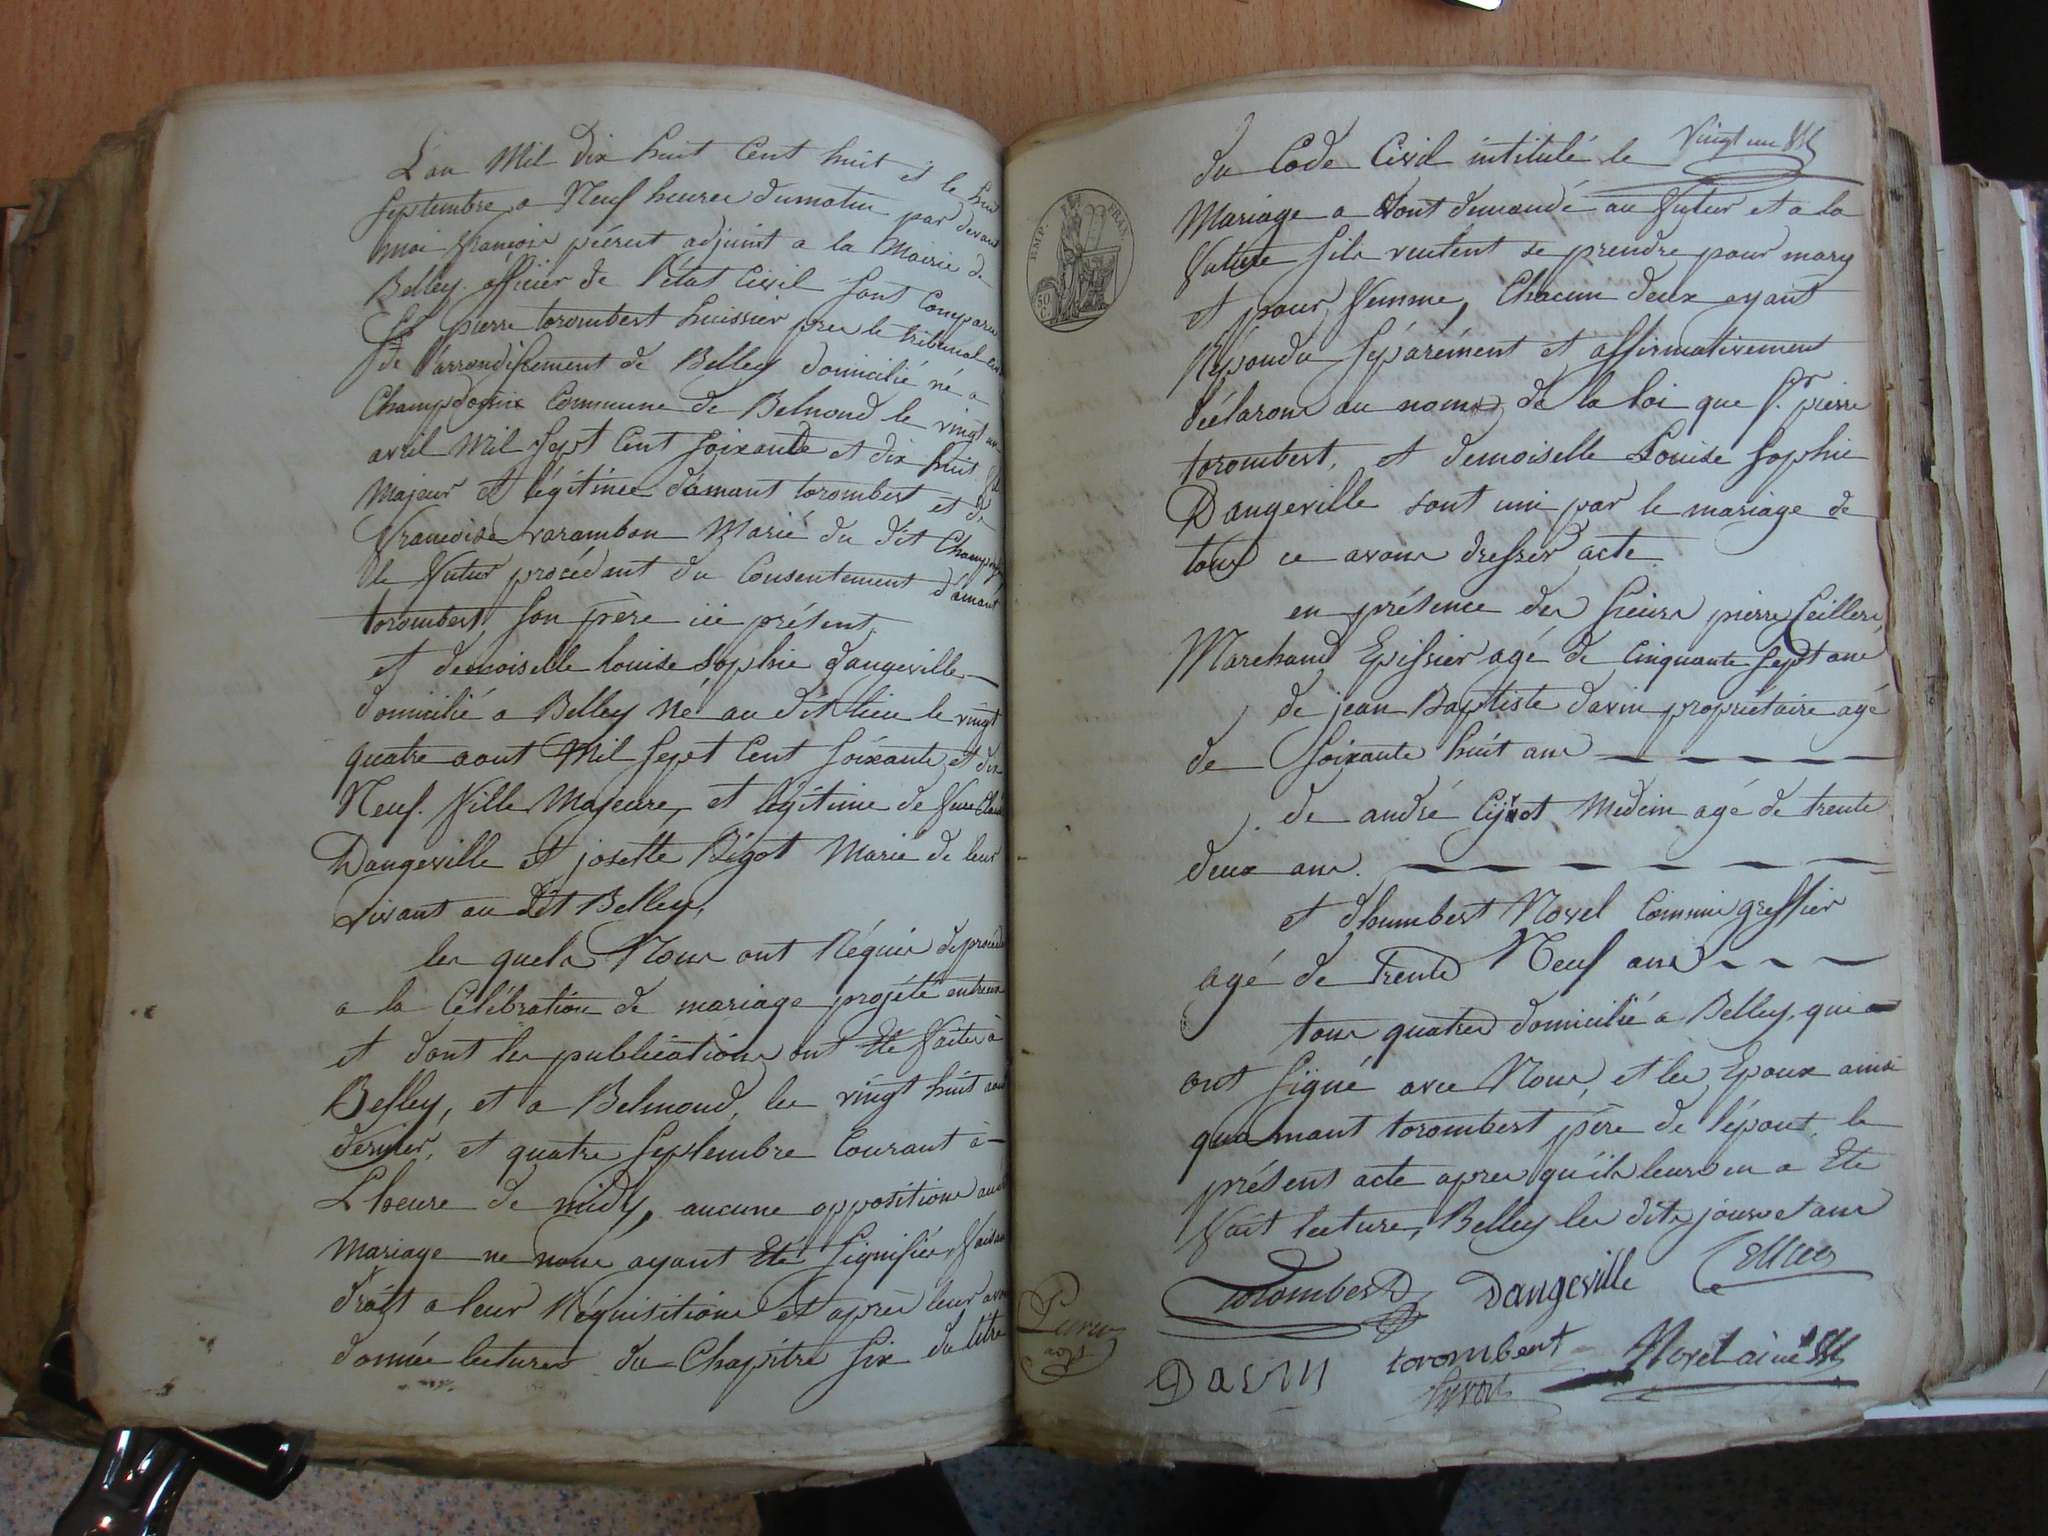 L'an Mil Dix huit Cent huit et le huit
Septembre a Neuf heures du matin par devant
moi françois péérut adjoint a la Mairie de
Belley officier de l'état Civil Sont Comparu
Sr pierre torombert huissier pres le tribunal
de l'arrondissement de Belley domicilié né a
Commune de Belmond le vingt
avril Mil Sept Cent Soixante et dix huit fils
Majeur et légitime d'amant torombert et de
françoise varambon Marié du dit
le futur procédant du Consentement d'amant
torombert Son père ici présent,
et demoiselle louise Sophie dangeville
domicilié a Belley Né au dit lieu le vingt
quatre aout Mil Sept Cent Soixante et dix
Neuf. fille Majeure, et légitime de feu
Dangeville et josette Bigot Marié de leur
vivant au dit Belley,
les quels Nous ont Réquis de procéder
a la Célébration de mariage projété entreux
et dont les publications ont Eté faites à
Belley, et a Belmond, les vingt huit aout
dernier, et quatre Septembre Courant à
L'heure de midy, aucune oppositions audit
Mariage ne nous ayant Eté Signifiés, faisant
droit a leur Réquisitions et après leur avoir
donnée lectures du Chapitre Six du titre
vingt un
du Code Civil intitulé le
Mariage a vont demandé au futur et a la
future Sils veulent se prendre pour mary
et pour femme, Chacun deux ayant
Répondu Séparément et affirmativement
déclarons au nom de la loi que Sr. pierre
torombert, et demoiselle Louise Sophie
Dangeville sont uni par le mariage de
tous ce avons dresser acte.
en présence des Sieurs pierre
Marchand Epissier agé de Cinquante Sept ans
de jean Baptiste davin propriétaire agé
de Soixante huit ans
de andré Medcin agé de trente
deux ans.
et Novel Commis greffier
agé de trente Neuf ans
tous quatres domicilié a Belley, qui
ont Signé avec Nous, et les Epoux ainsi
qu'amant torombert père de l'épout, le
présent acte apres qu'ils leurs en a Eté
fait lecture, Belley les dits jours et ans
torombert Dangeville
torombert Novel ainé
Davin
EMP. FRAN.
50
C.